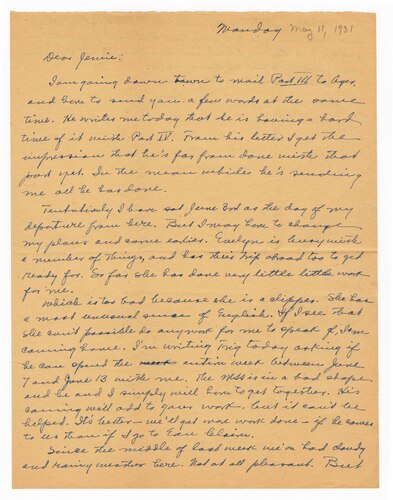 Monday May 11, 1931
Dear Jennie:
I am going down town to mail Part III to Ager,
and have to send you a few words at the same
time. He writes me today that he is having a hard
time of it with Part IV. From his letter I get the
impression that he's far from done with that
part yet. In the mean while he's sending
me all he has done.
Tentatively I have set June 3rd as the day of my
departure from here. But I may have to change
my plans and come earlier. Evelyn is busy with
a number of things, and has their trip abroad too to get
ready for. So far she has done very little little work
for me.
Which is too bad because she is a clipper. She has
a most unusual sense of English. If I see that
she can't possible do any work for me to speak of, I am
coming home. I'm writing Trig today asking if
he can spend the entire week between June
7 and June 13 with me. The Mss is in a bad shape
and he and I simply will have to get together. His
coming will add to your work - but it can't be
helped. It's better - we'll get more work done - if he comes
to us than if I go to Eau Claire.
Since the middle of last week we've had cloudy
and rainy weather here. Not at all pleasant. But